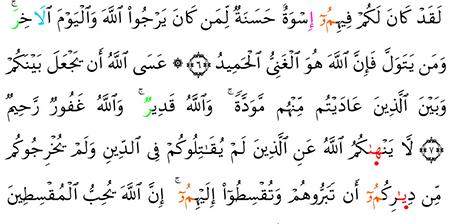 لَقَدْ كَانَ لَكُمْ فِيهِمُۥٓ إِسْوَةٌ حَسَنَةٌ لِّمَن كَانَ يَرْجُواْ اللَّهَ وَالْيَوْمَ الَاخِرَۚ
وَمَن يَتَوَلَّ فَإِنَّ اللَّهَ هُوَ الْغَنِيُّ الْحَمِيدُ ﴿٦﴾ ۞ عَسَى اللَّهُ أَن يَجْعَلَ بَيْنَكُمْ
وَبَيْنَ الَّذِينَ عَادَيْتُم مِّنْهُم مَّوَدَّةًۚ وَاللَّهُ قَدِيرٌۚ وَاللَّهُ غَفُورٌ رَّحِيمٌ
﴿٧﴾ لَّا يَنْهٰىكُمُ اللَّهُ عَنِ الَّذِينَ لَمْ يُقَٰتِلُوكُمْ فِي الدِّينِ وَلَمْ يُخْرِجُوكُم
مِّن دِيٰرِكُمُۥٓ أَن تَبَرُّوهُمْ وَتُقْسِطُوٓاْ إِلَيْهِمُۥٓۚ إِنَّ اللَّهَ يُحِبُّ الْمُقْسِطِينَ